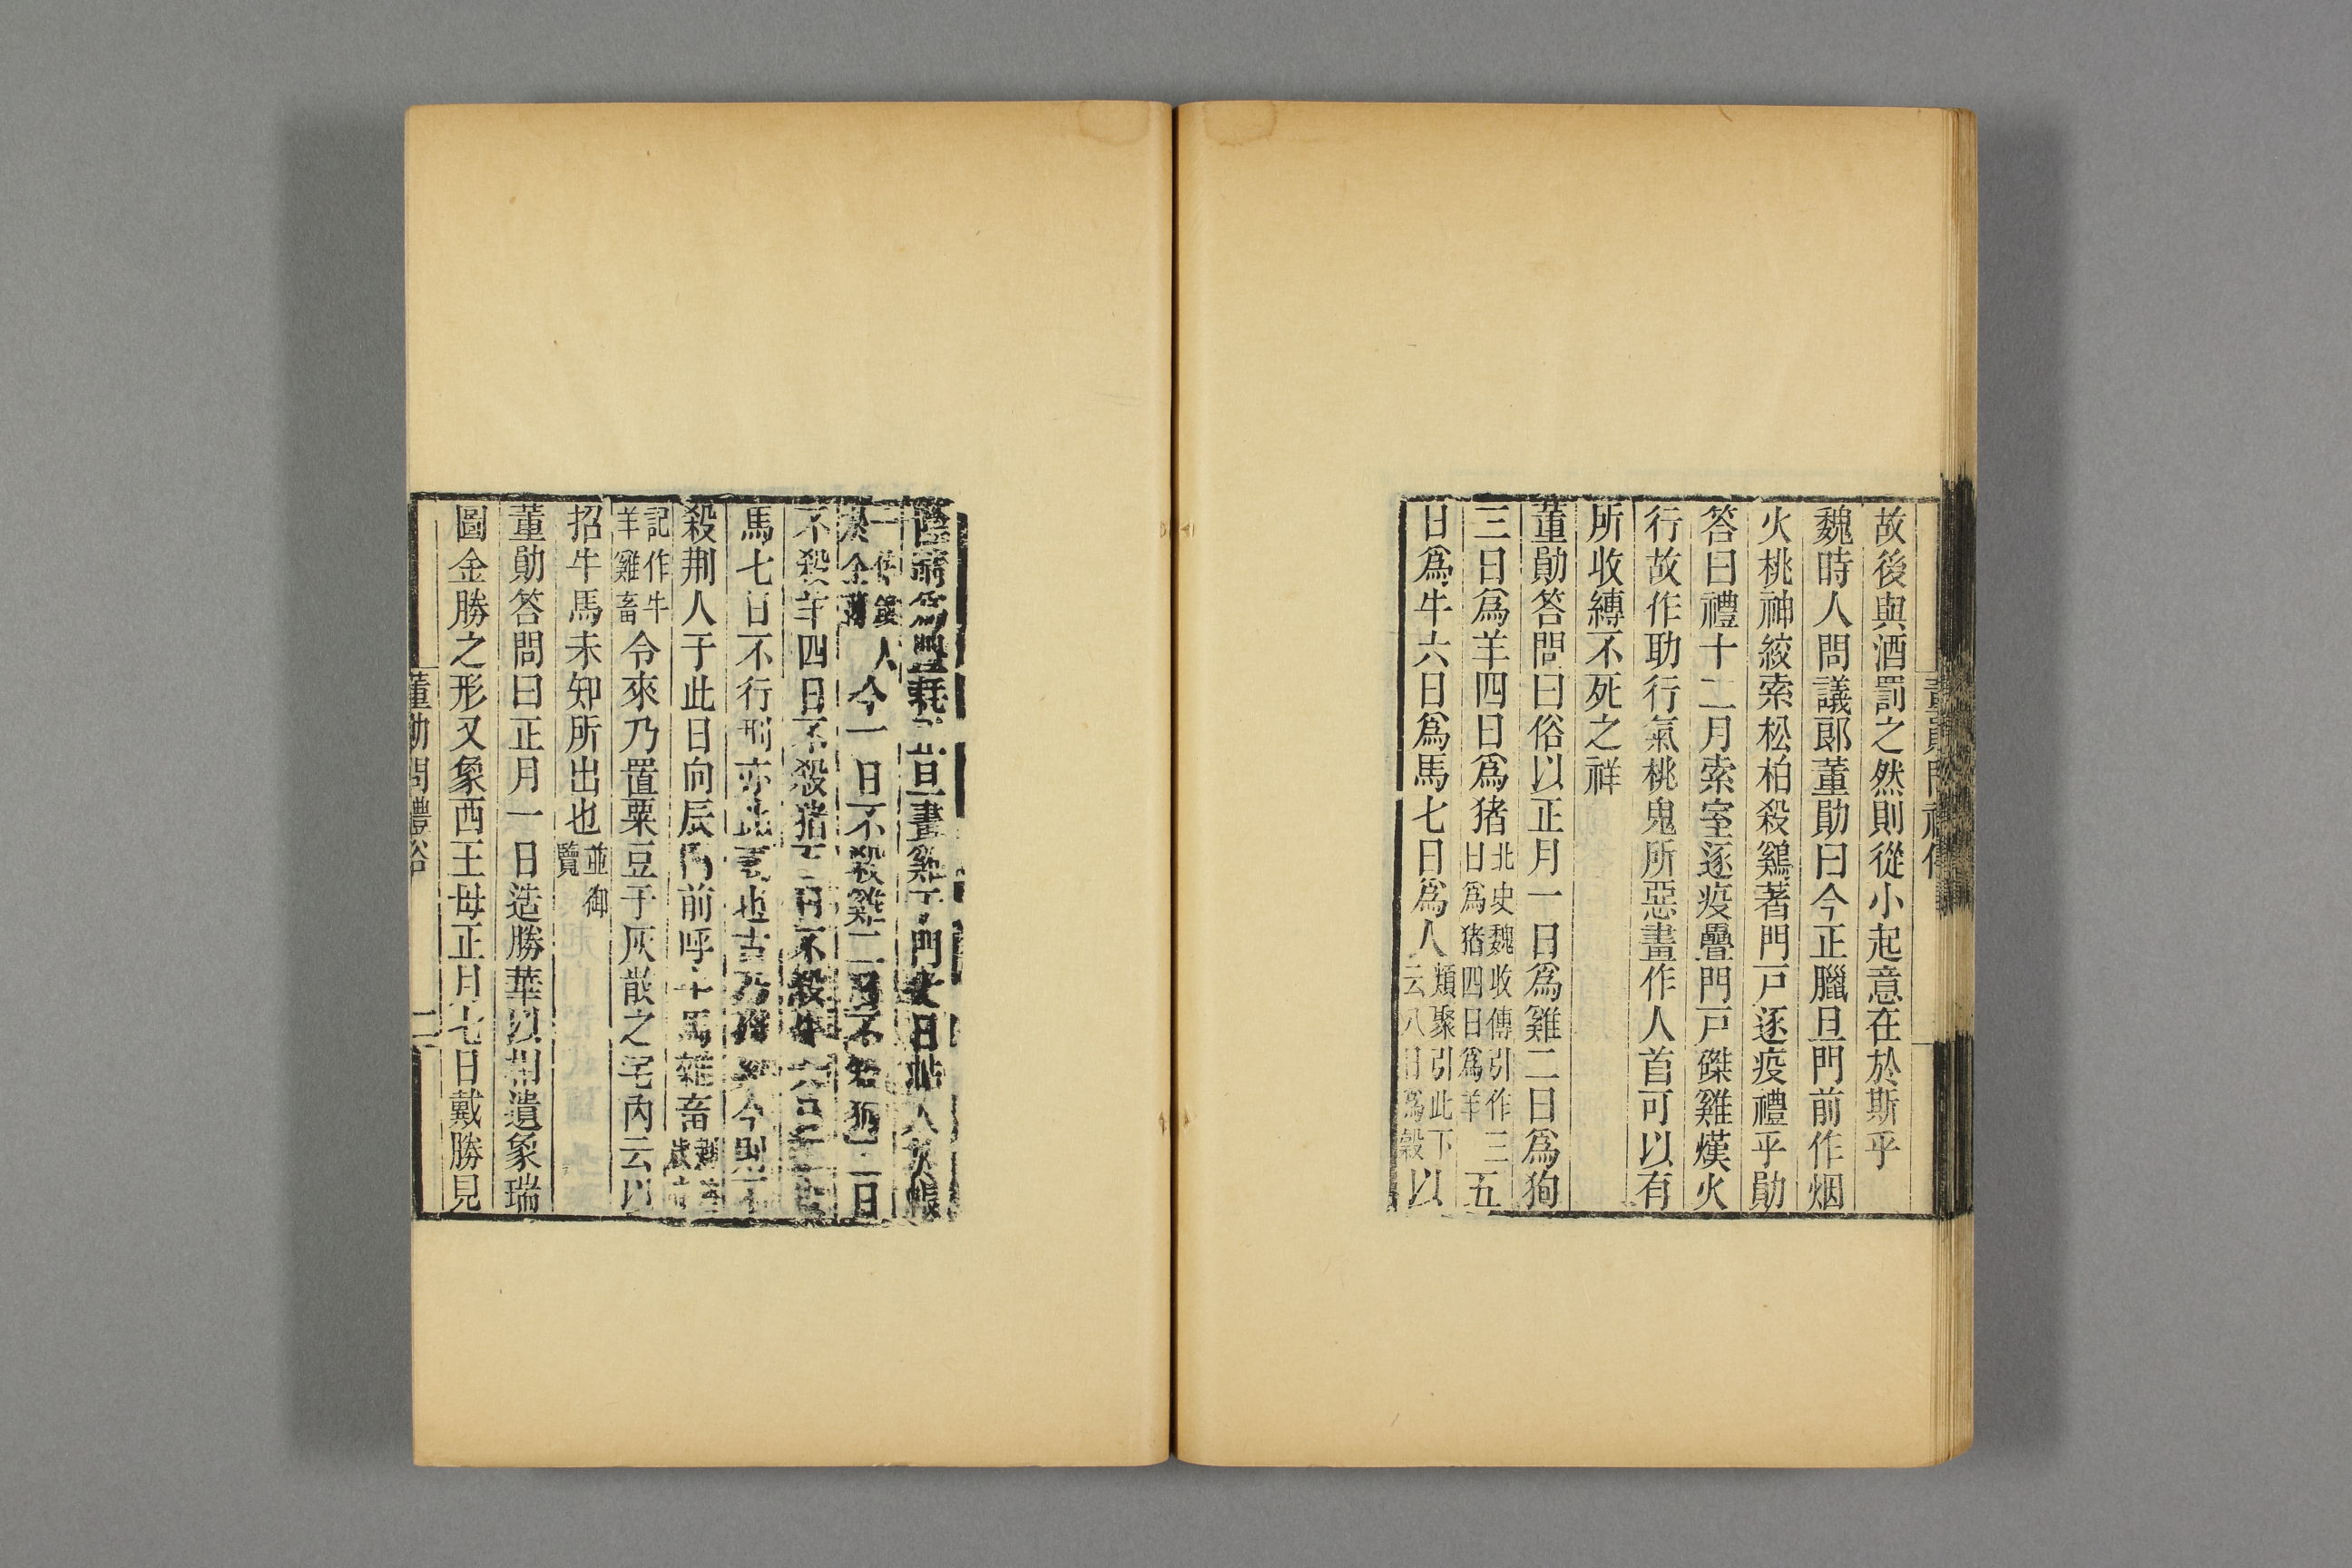 故後與酒罰之然則從小起意在於斯乎
魏時人問議郎董勛曰今正臘旦門前作烟
火桃神絞索松柏殺鷄著門戸逐疫禮乎勛
答曰禮十二月索室逐疫釁門戸磔雞熯火
行故作助行氣桃鬼所惡畫作人首可以有
所收縛不死之祥
董勛答問曰俗以正月一日爲雞二日爲狗
三日爲羊四日爲猪北史魏收傳引作三日爲猪四日爲羊五
日爲牛六日爲馬七日爲人類聚引此下云八日爲穀以
旦畫雞于門七日帖人
人今一日不殺雞二日不殺狗三日
不殺羊四日不殺猪五日不殺牛六日不殺
馬七日不行刑亦此義也古乃磔雞今則不
殺荆人于此日向辰門前呼牛馬雜畜
記作牛羊雞畜令來乃置粟豆于灰散之宅內云以
招牛馬未知所出也並御覽
董勛答問曰正月一日造勝華以相遺象瑞
圖金勝之形又象西王母正月七日戴勝見
董勛問禮俗
二